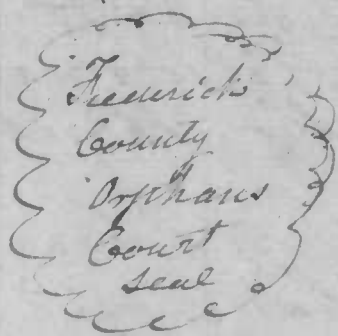 Frederick
County
Orphans
Court
seal